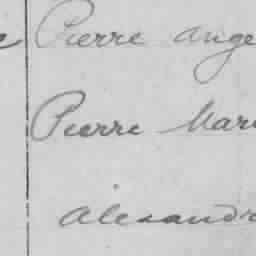 e Pierre ange
Pierre Mari
alexandr